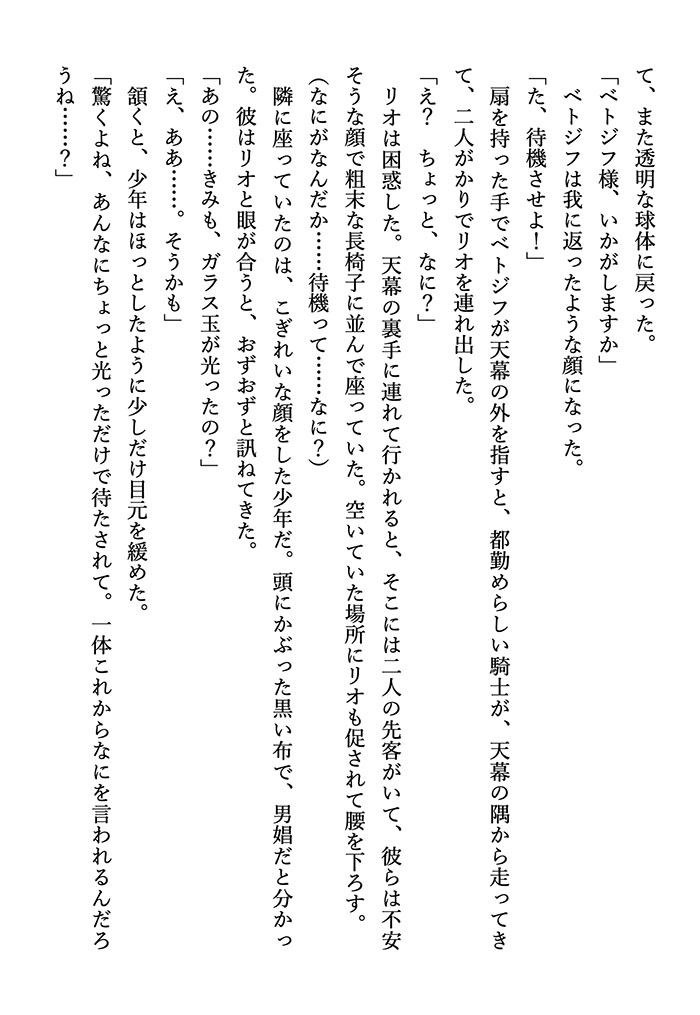 て、また透明な球体に戻った。
「ベトジフ様、いかがしますか」
　ベトジフは我に返ったような顔になった。
「た、待機させよ！」
　扇を持った手でベトジフが天幕の外を指すと、都勤めらしい騎士が、天幕の隅から走ってき
て、二人がかりでリオを連れ出した。
「え？　ちょっと、なに？」
　リオは困惑した。天幕の裏手に連れて行かれると、そこには二人の先客がいて、彼らは不安
そうな顔で粗末な長椅子に並んで座っていた。空いていた場所にリオも促されて腰を下ろす。
（なにがなんだか……待機って……なに？）
　隣に座っていたのは、こぎれいな顔をした少年だ。頭にかぶった黒い布で、男娼だと分かっ
た。彼はリオと眼が合うと、おずおずと訊ねてきた。
「あの……きみも、ガラス玉が光ったの？」
「え、ああ……。そうかも」
　頷くと、少年はほっとしたように少しだけ目元を緩めた。
「驚くよね、あんなにちょっと光っただけで待たされて。一体これからなにを言われるんだろ
うね……？」